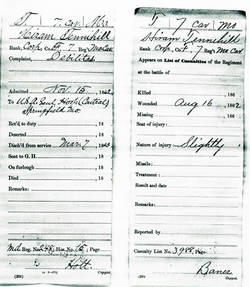 T 7 Cav Mo
Hiram Tennihill
Rank Corp, Co. F 7 Reg't Mo Cav
Complaint, Debilitas
Admitted Nov 15, 1862
To U.S.A. Genl. Hosp'l (Central)
Springfield Mo.
Ret'd to duty 186
Deserted 186
Disch'd from service Mar 7, 1863
Sent to G. H. 186
On furlough 186
Died 186
Remarks:
Page
Holt
Copyist.
T 7 Cav Mo
Hiram Tennihill
Rank Corp, Co. F 7 Reg't Mo Cav
Appears on List of Casualties of the Regiment
at the battle of
Killed 186
Wounded Aug 16, 1862
Missing 186
Seat of injury:
Nature of injury Slightly
Missile:
Treatment:
Result and date
Remarks:
Reported by
Casualty List No. 3988, Page
Copyist.